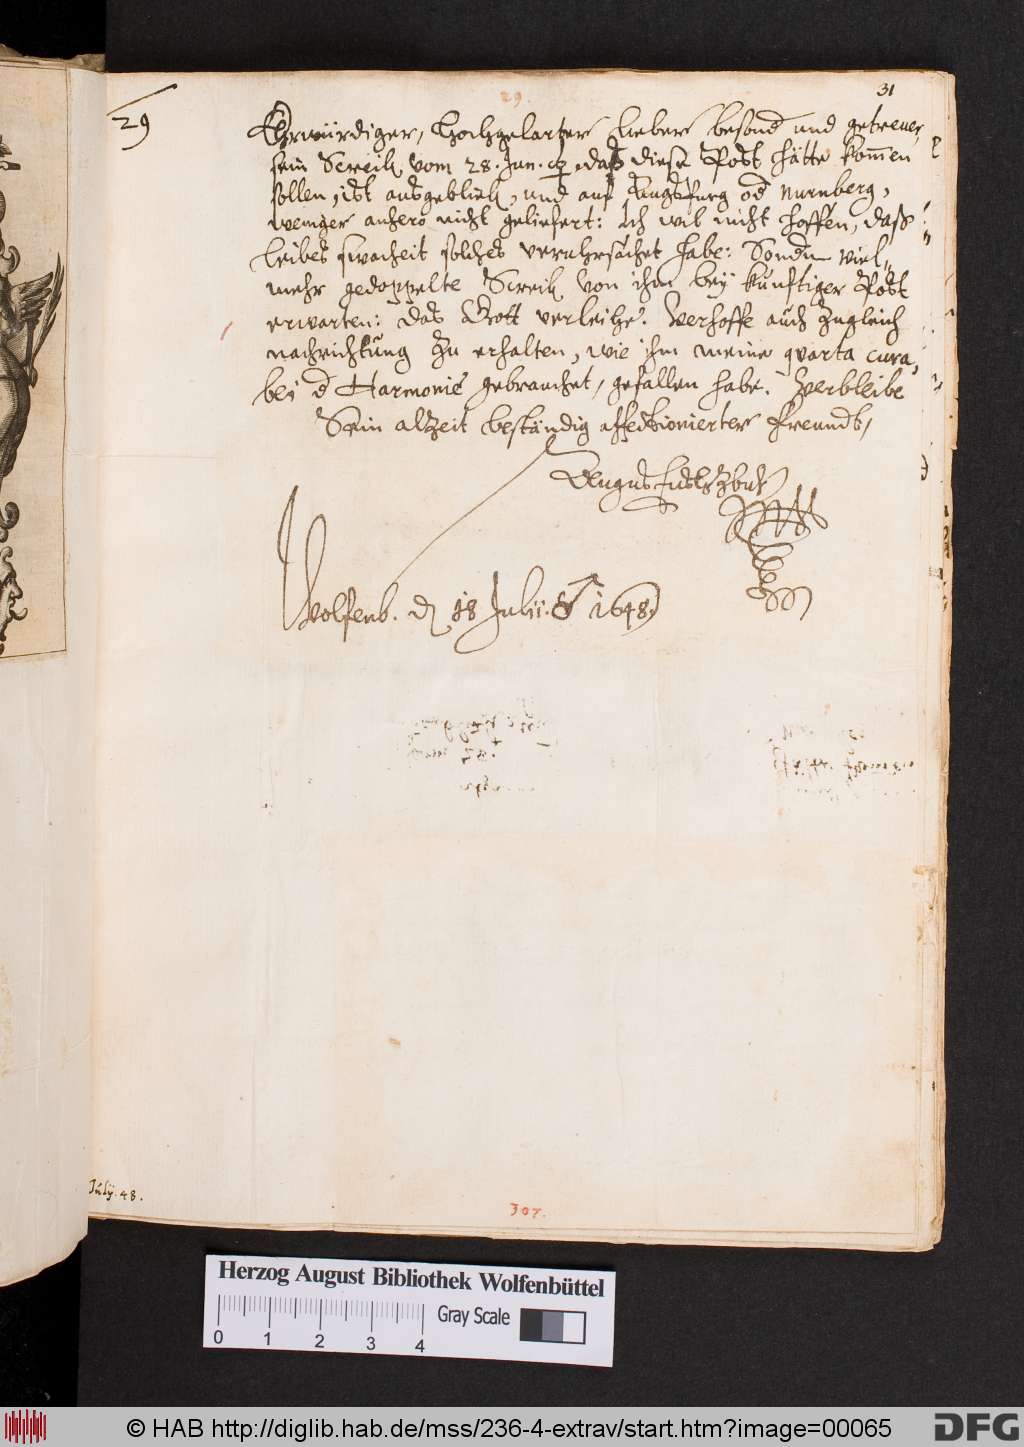 29
29.
31
Ehrwürdiger, Hochgelarter lieber besond und getrewer,
sein Screib. vom 28. Jun. daß diese Post hätte kommen
sollen, ist ausgeblieb, und auf Augsburg od Nurnberg,
weniger anhero nicht geliefert: Ich wil nicht hoffen, daß
leibes swacheit solches veruhrsachet habe: Sondn viel
mehr gedoppelte Screib. von ihm beÿ kunftiger Post
erwarten: das Gott verleihe. Verhoffe auch zugleich
nachrichtung zu erhalten, wie ihm meine quarta cura,
beÿ d Harmonie gebrauchet, gefallen habe. Verbleibe
Sein alzeit beständig affectionierter Freundt,
Augustus HzBuL
Wolfenb. d 18 Julii. ♂ 1648.
Julÿ. 48.
307.
Herzog August Bibliothek Wolfenbüttel
Gray Scale
0 1 2 3 4
© HAB http://diglib.hab.de/mss/236-4-extrav/start.htm?image=00065
DFG